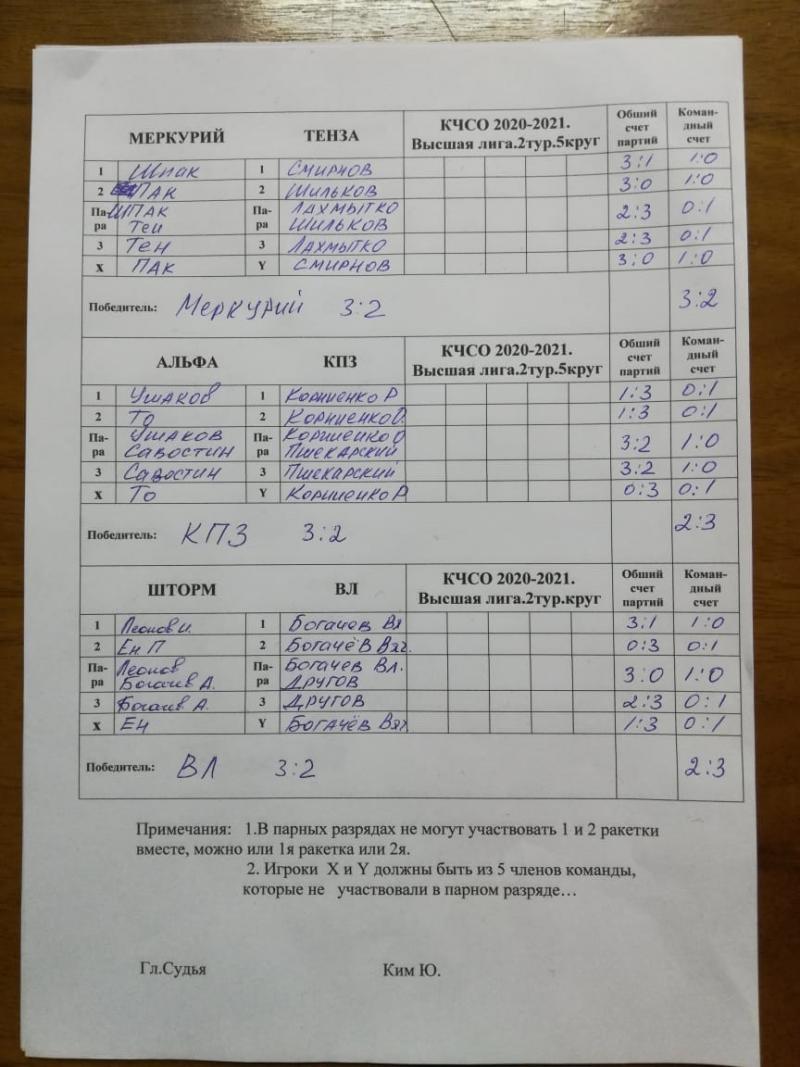 МЕРКУРИЙ ТЕНЗА КЧСО 2020-2021. Высшая лига.2тур.5круг Общий счет партий Коман-дный счет
1 Шпак 1 СМИРНОВ 3:1 1:0
2 ПАК 2 ШИЛЬКОВ 3:0 1:0
Па-ра ШПАК Тен Па-ра ЛАХМЫТКО ШИЛЬКОВ 2:3 0:1
3 ТЕН 3 ЛАХМЫТКО 2:3 0:1
X ПАК Y СМИРНОВ 3:0 1:0
Победитель: Меркурий 3:2 3:2
АЛЬФА КПЗ КЧСО 2020-2021. Высшая лига.2тур.5круг Общий счет партий Коман-дный счет
1 Ушаков 1 КОРНИЕНКО Р 1:3 0:1
2 То 2 КОРНИЕНКО О. 1:3 0:1
Па-ра УШАКОВ САВОСТИН Па-ра КОРНИЕНКО О ПШЕКАРСКИЙ 3:2 1:0
3 САВОСТИН 3 ПШЕКАРСКИЙ 3:2 1:0
X То Y КОРНИЕНКО Р 0:3 0:1
Победитель: КПЗ 3:2 2:3
ШТОРМ ВЛ КЧСО 2020-2021. Высшая лига.2тур.круг Общий счет партий Коман-дный счет
1 Леонов И. 1 Богачев Вл 3:1 1:0
2 Ен П 2 БОГАЧЁВ Вяч. 0:3 0:1
Па-ра Леонов Богачев А. Па-ра БОГАЧЕВ Вл. ДРУГОВ 3:0 1:0
3 Богачев А. 3 ДРУГОВ 2:3 0:1
X ЕН Y БОГАЧЁВ Вяч 1:3 0:1
Победитель: ВЛ 3:2 2:3
Примечания: 1.В парных разрядах не могут участвовать 1 и 2 ракетки
вместе, можно или 1я ракетка или 2я.
2. Игроки X и Y должны быть из 5 членов команды,
которые не участвовали в парном разряде…
Гл.Судья Ким Ю.